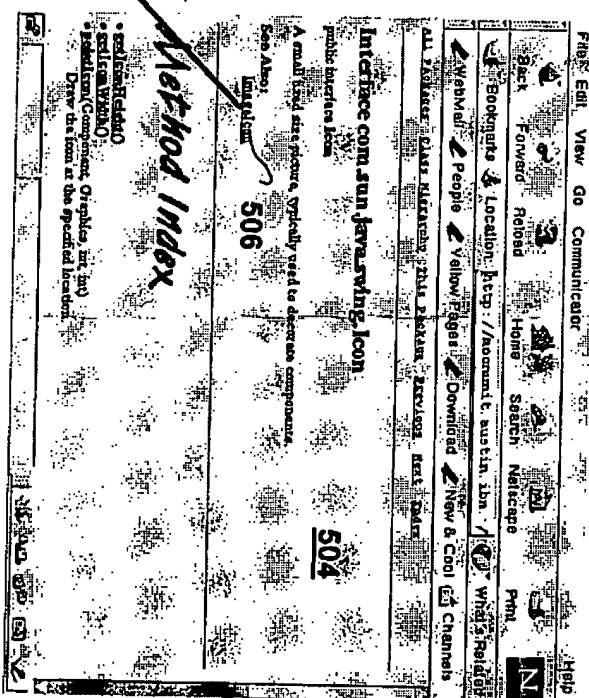 File Edit View Go Communicator Help
Back Forward Reload Home Search Netscape Print
Bookmarks Location: http://mocunit.austin.ibm/ What's Related
WebMail People Yellow Pages Download New & Cool Channels
All Packages Class Hierarchy This Package Previous Next Index
Interface com.sun.java.swing.Icon
public interface Icon
504
A small fixed size picture, typically used to decorate components.
See Also:
ImageIcon
506
Method Index
• getIconHeight()
• getIconWidth()
• paintIcon(Component, Graphics, int, int)
Draw the icon at the specified location.